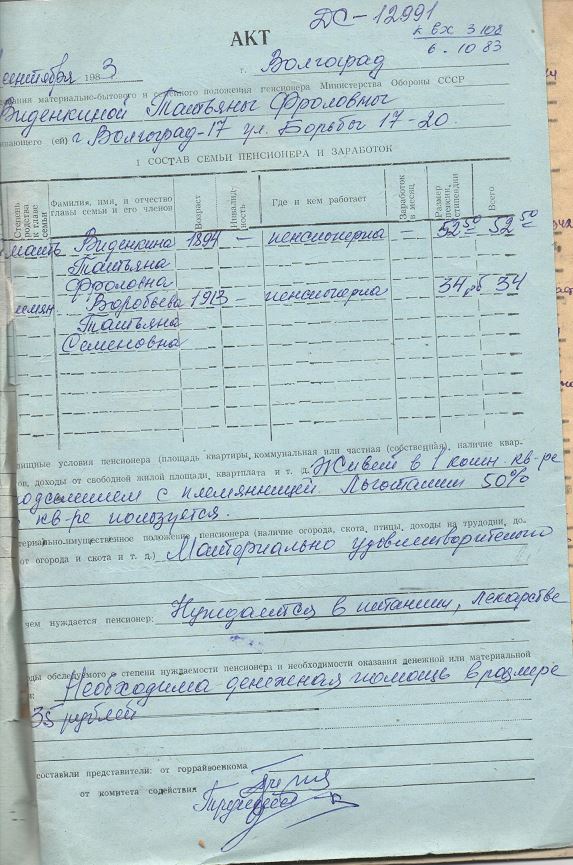 ДС-12991
АКТ
к вх 3108
6.10 83
сентября 1983
г. Волгоград
ования материально-бытового и семейного положения пенсионера Министерства Обороны СССР
Виденкиной Татьяны Фроловны
ивающего (ей) г Волгоград-17 ул. Борьбы 17-20.
1 СОСТАВ СЕМЬИ ПЕНСИОНЕРА И ЗАРАБОТОК
Степень родства к главе семьи
Фамилия, имя, и отчество главы семьи и его членов
Возраст
Инвалидность
Где и кем работает
Заработок в месяц
Размер пенсии, стипендии
Всего
мать Виденкина 1894 — пенсионерка — 52 50 52 50
Татьяна
Фроловна
лемян. Воробьева 1913 — пенсионерка 34 рб 34
Татьяна
Семеновна
лищные условия пенсионера (площадь квартиры, коммунальная или частная (собственная), наличие квар-
ов, доходы от свободной жилой площади, квартплата и т. д. Живет в 1 комн. кв-ре
подселением с племянницей. Льготами 50%
кв-ре пользуется.
териально-имущественное положение пенсионера (наличие огорода, скота, птицы, доходы на трудодни, до-
от огорода и скота и т. д.) Материально удовлетворительно
чем нуждается пенсионер: Нуждается в питании, лекарстве
оды обследуемого о степени нуждаемости пенсионера и необходимости оказания денежной или материальной
и: Необходима денежная помощь в размере
35 рублей
составили представители: от горрайвоенкома
от комитета содействия